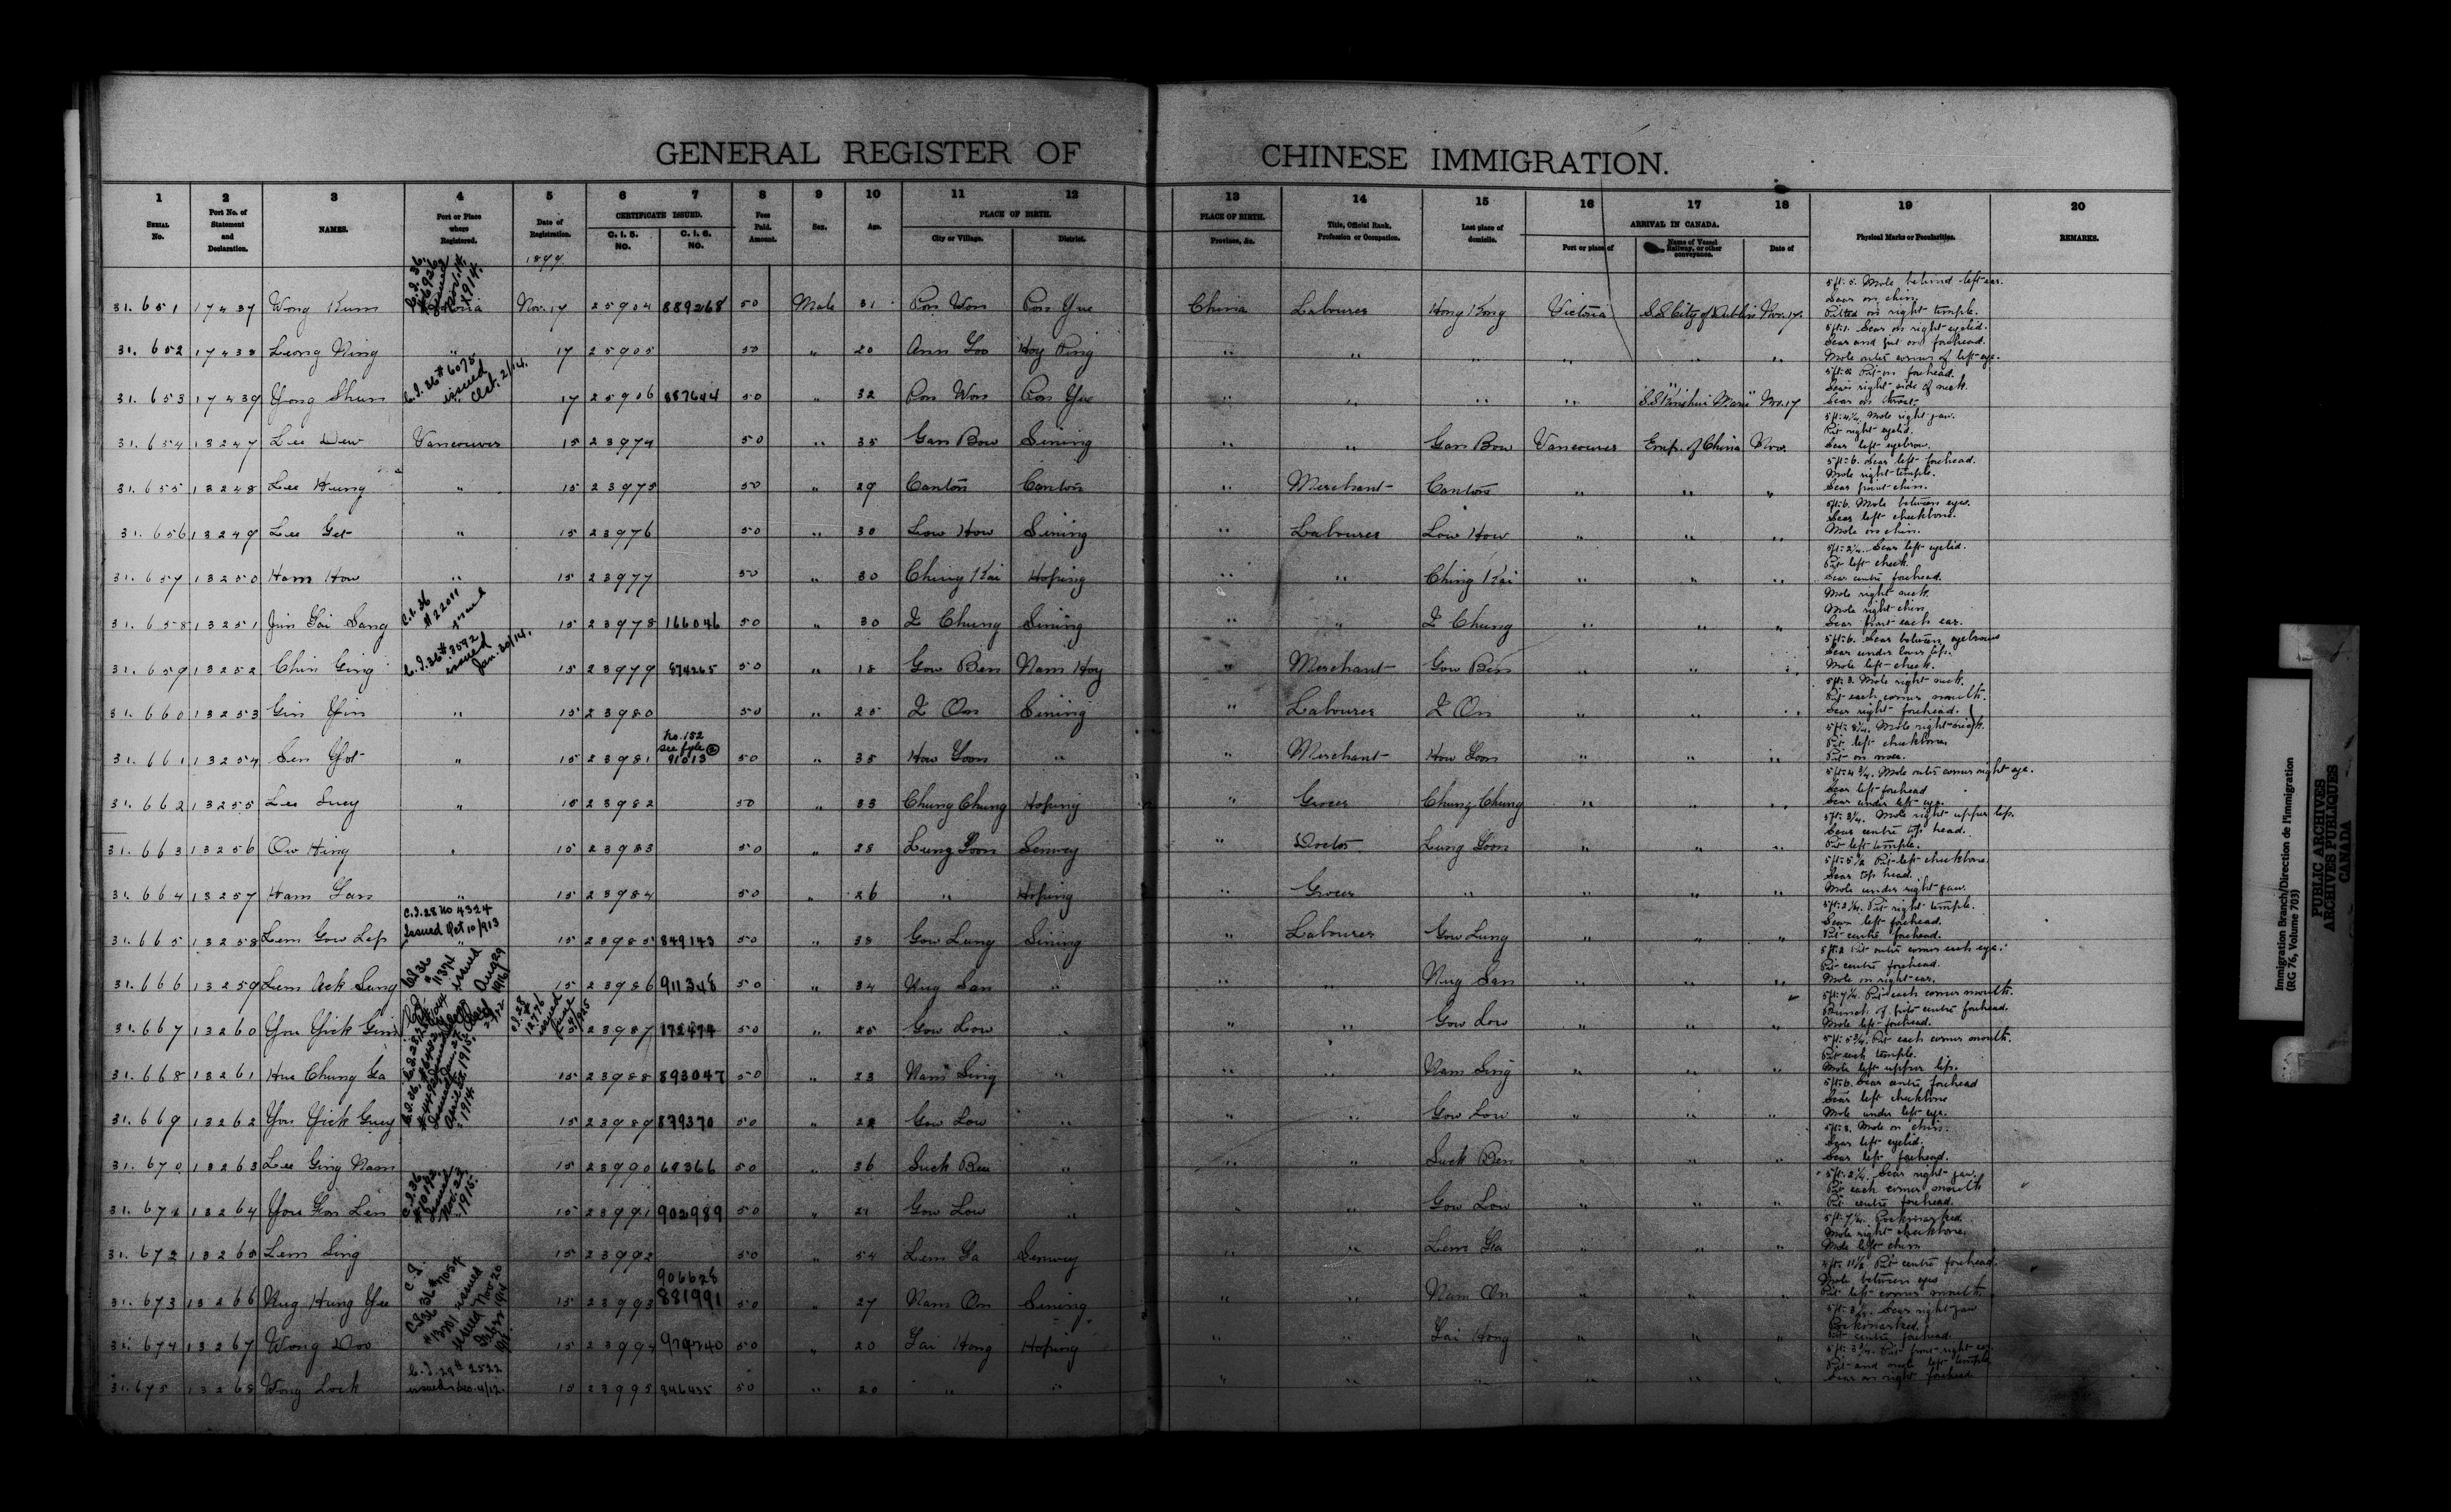 GENERAL REGISTER OF CHINESE IMMIGRATION.
1 2 3 4 5 6 7 8 9 10 11 12 13 14 15 16 17 18 19 20
SERIAL No. Port No. of Statement and Declaration. NAMES. Port or Place where Registered. Date of Registration. CERTIFICATE ISSUED. C. I. 5. NO. C. I. 6. NO. Fees Paid. Amount. Sex. Age. PLACE OF BIRTH. City or Village. District. PLACE OF BIRTH. Province, &c. Title, Official Rank, Profession or Occupation. Last place of domicile. ARRIVAL IN CANADA. Port or place of Name of Vessel Railway, or other conveyance. Date of Physical Marks or Peculiarities. REMARKS.
1899
31.651 17437 Wong Kum Nov. 17 25904 889268 50 Male 31 Pon Won Pon Yue China Labourer Hong Kong Victoria S.S. City of Dublin Nov. 17. 5ft. 5. Mole behind left ear. Scar on chin. Pitted on right temple.
31.652 17438 Leong Ning " 17 25905 50 " 20 Ann Loo Hoy Ping " " " " " " 5ft. 1. Scar on right eyelid. Scar and pit on forehead. Mole outer corner of left eye.
31.653 17439 Yong Shun C.I. 36 # 6075 issued Oct. 2/14. 17 25906 887644 50 " 32 Pon Won Pon Yue " " " " Nov. 17 Pit on forehead. Scar right side of neck. Scar on throat.
31.654 13247 Lee Dew Vancouver 15 23974 50 " 35 Gan Bow Sining " " Gan Bow Vancouver Emp. of China Nov. 5ft. 4¼. Mole right jaw. Pit right eyelid. Scar left eyebrow.
31.655 13248 Lee Hung " 15 23975 50 " 29 Canton Canton " Merchant Canton " " " 5ft. 6. Scar left forehead. Mole right temple. Scar point chin.
31.656 13249 Lee Get " 15 23976 50 " 30 Low How Sining " Labourer Low How " " " 5ft. 6. Mole between eyes. Scar left cheekbone. Mole on chin.
31.657 13250 Ham How " 15 23977 50 " 30 Ching Kai Hoping " " Ching Kai " " " 5ft. 2¼. Scar left eyelid. Pit left cheek. Scar centre forehead.
31.658 13251 Jim Gai Sang C.I. 36 # 22011 issued 15 23978 166046 50 " 30 I Chung Sining " " I Chung " " " Mole right neck. Mole right chin. Scar front each ear.
31.659 13252 Chin Ging C.I. 36 # 3592 issued Jan. 30/14. 15 23979 874265 50 " 18 Gow Ben Nam Hoy " Merchant Gow Ben " " " 5ft. 6. Scar between eyebrows Scar under lower lip. Mole left cheek.
31.660 13253 Gin Yin " 15 23980 50 " 25 I On Sining " Labourer I On " " " 5ft. 3. Mole right neck. Pit each corner mouth. Scar right forehead.
31.661 13254 Sen Yot " 15 23981 No. 152 see fyle 91013 50 " 35 How Loon " " Merchant How Loon " " " Mole right cheek. Pit left cheekbone. Pit on nose.
31.662 13255 Lee Suey " 15 23982 50 " 33 Chung Chung Hoping " Grocer Chung Chung " " " 5ft. 4¾. Mole outer corner right eye. Scar left forehead Scar under left eye.
31.663 13256 Ow Hing " 15 23983 50 " 28 Lung Loon Senwey " Doctor Lung Loon " " " 5ft. 3¼. Mole right upper lip. Scar centre top head. Pit left temple.
31.664 13257 Ham Gan " 15 23984 50 " 26 " Hoping " Grocer " " " " 5ft. 5½ Pit left cheekbone. Scar top head. Mole under right jaw.
31.665 13258 Lem Gow Lep C.I. 28 No 4324 Issued Oct 10/913 15 23985 849143 50 " 38 Gow Lung Sining " Labourer Gow Lung " " " Pit right temple. Scar left forehead. Pit centre forehead.
31.666 13259 Lem Ack Sung C.I. 36 # 11374 issued Aug 29 1916 15 23986 911348 50 " 34 Nug San " " " Nug San " " " 5ft. 2 Pit outer corner each eye. Pit centre forehead. Mole on right ear.
31.667 13260 You Yick Gim C.I. 28 # 12776 issued 23987 172474 50 " 25 Gow Low " " " Gow Low " " " 5ft. 7¼. Pit each corner mouth. Bunch of pits centre forehead. Mole left forehead.
31.668 13261 Hue Chung Ga 15 23988 893047 50 " 23 Nam Sing " " " Nam Sing " " " 5ft. 5¾. Pit each corner mouth. Pit each temple. Mole left upper lip.
31.669 13262 You Yick Guey 15 23989 879370 50 " 22 Gow Low " " " Gow Low " " " 5ft. 6. Scar centre forehead Scar left cheekbone Mole under left eye.
31.670 13263 Lee Ging Nam 15 23990 69366 50 " 36 Suck Ben " " " Suck Ben " " " 5ft. 3. Mole on chin. Scar left eyelid. Scar left forehead.
31.671 13264 You Gon Len C.I. 36 # 10192 Issued Nov. 22 1915. 15 23991 902989 50 " 21 Gow Low " " " Gow Low " " " 5ft. 2¼. Scar right jaw. Pit each corner mouth Pit centre forehead.
31.672 13265 Lem Sing 15 23992 50 " 54 Lem Ga Senwey " " Lem Ga " " " 5ft. 7¼. Pockmarked. Mole right cheekbone. Mole left chin
31.673 13266 Nug Hung Yee C.I. 36 # 7054 issued Nov 20 1914 15 23993 906628 881991 50 " 27 Nam On Sining " " Nam On " " " 4ft. 11½ Pit centre forehead. Mole between eyes Pit left corner mouth.
31.674 13267 Wong Doo 15 23994 50 " 20 Tai Hong Hoping " " Tai Hong " " " Scar right jaw Pockmarked. Pit centre forehead.
31.675 13268 Wong Lock C.I. 28 # 2522 issued 15 23995 846435 50 " 20 " " " " " " " " Pit front right ear. Scar on right forehead
Immigration Branch/Direction de l'immigration
(RG 76, Volume 703)
PUBLIC ARCHIVES
ARCHIVES PUBLIQUES
CANADA